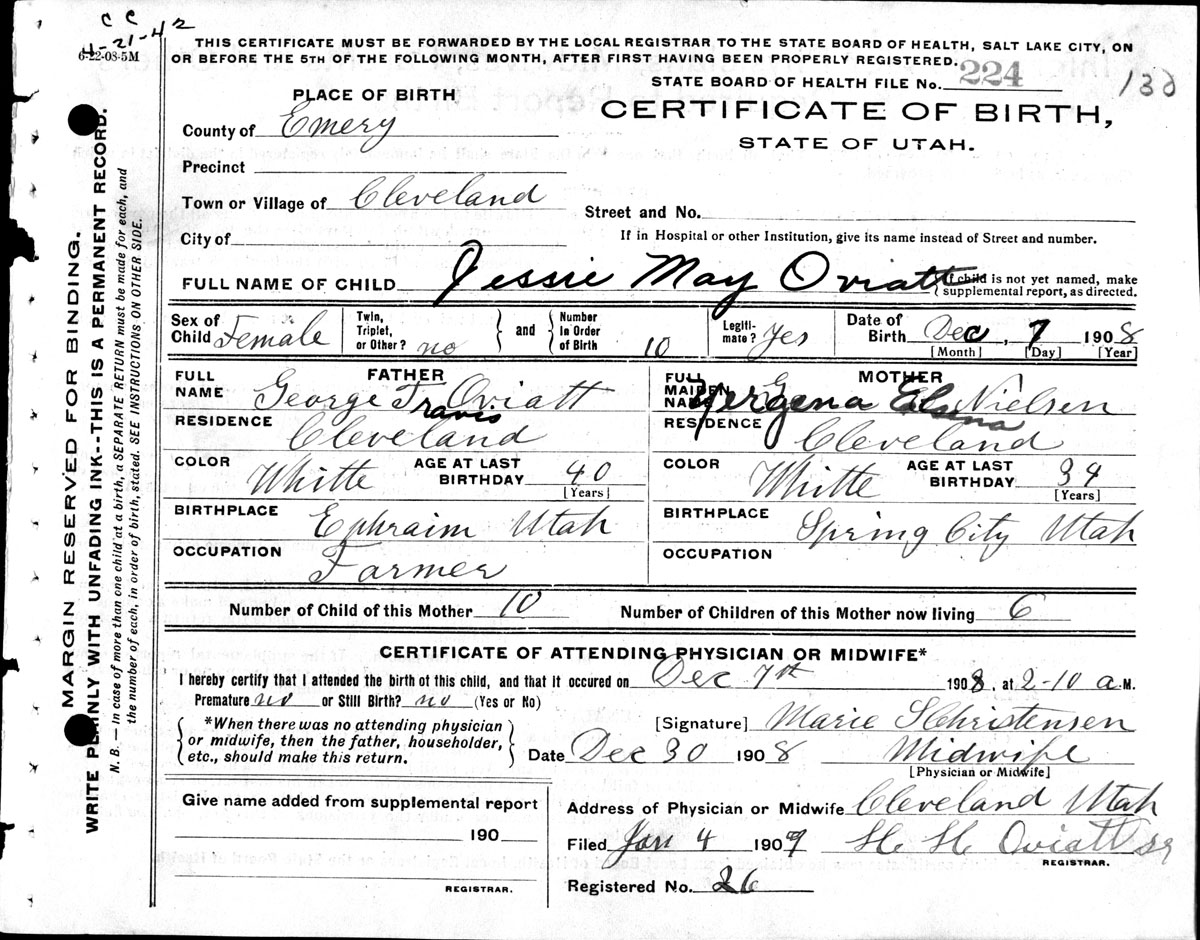 C C
4-21-42
6-22-08-5M
THIS CERTIFICATE MUST BE FORWARDED BY THE LOCAL REGISTRAR TO THE STATE BOARD OF HEALTH, SALT LAKE CITY, ON
OR BEFORE THE 5TH OF THE FOLLOWING MONTH, AFTER FIRST HAVING BEEN PROPERLY REGISTERED.
STATE BOARD OF HEALTH FILE No. 224
138
PLACE OF BIRTH
CERTIFICATE OF BIRTH,
STATE OF UTAH.
County of Emery
Precinct
Town or Village of Cleveland
Street and No.
City of
If in Hospital or other Institution, give its name instead of Street and number.
FULL NAME OF CHILD Jessie May Oviatt
{If child is not yet named, make
supplemental report, as directed.
Sex of Child Female
Twin, Triplet, or Other? no
and
Number in Order of Birth 10
Legiti-mate? Yes
Date of Birth Dec, 7 1908
[Month] [Day] [Year]
FATHER
FULL NAME George Travis Oviatt
RESIDENCE Cleveland
COLOR Whitte
AGE AT LAST BIRTHDAY 40
[Years]
BIRTHPLACE Ephraim Utah
OCCUPATION Farmer
MOTHER
FULL MAIDEN NAME Yergena Elsina Nielsen
RESIDENCE Cleveland
COLOR Whitte
AGE AT LAST BIRTHDAY 34
[Years]
BIRTHPLACE Spring City Utah
OCCUPATION
Number of Child of this Mother 10
Number of Children of this Mother now living 6
CERTIFICATE OF ATTENDING PHYSICIAN OR MIDWIFE*
I hereby certify that I attended the birth of this child, and that it occured on Dec 7st 1908, at 2-10 a.M.
Premature no or Still Birth? no (Yes or No)
*When there was no attending physician
or midwife, then the father, householder,
etc., should make this return.
[Signature] Marie S Christensen
Date Dec 30 1908 Midwife
[Physician or Midwife]
Give name added from supplemental report
190
REGISTRAR.
Address of Physician or Midwife Cleveland Utah
Filed Jan 4 1909 H. H. Oviatt sr
REGISTRAR.
Registered No. 26
MARGIN RESERVED FOR BINDING.
WRITE PLAINLY WITH UNFADING INK--THIS IS A PERMANENT RECORD.
N. B. — In case of more than one child at a birth, a SEPARATE RETURN must be made for each, and
the number of each, in order of birth, stated. SEE INSTRUCTIONS ON OTHER SIDE.